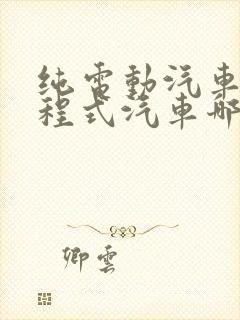 纯電動汽車
程式汽車哪
卿雲